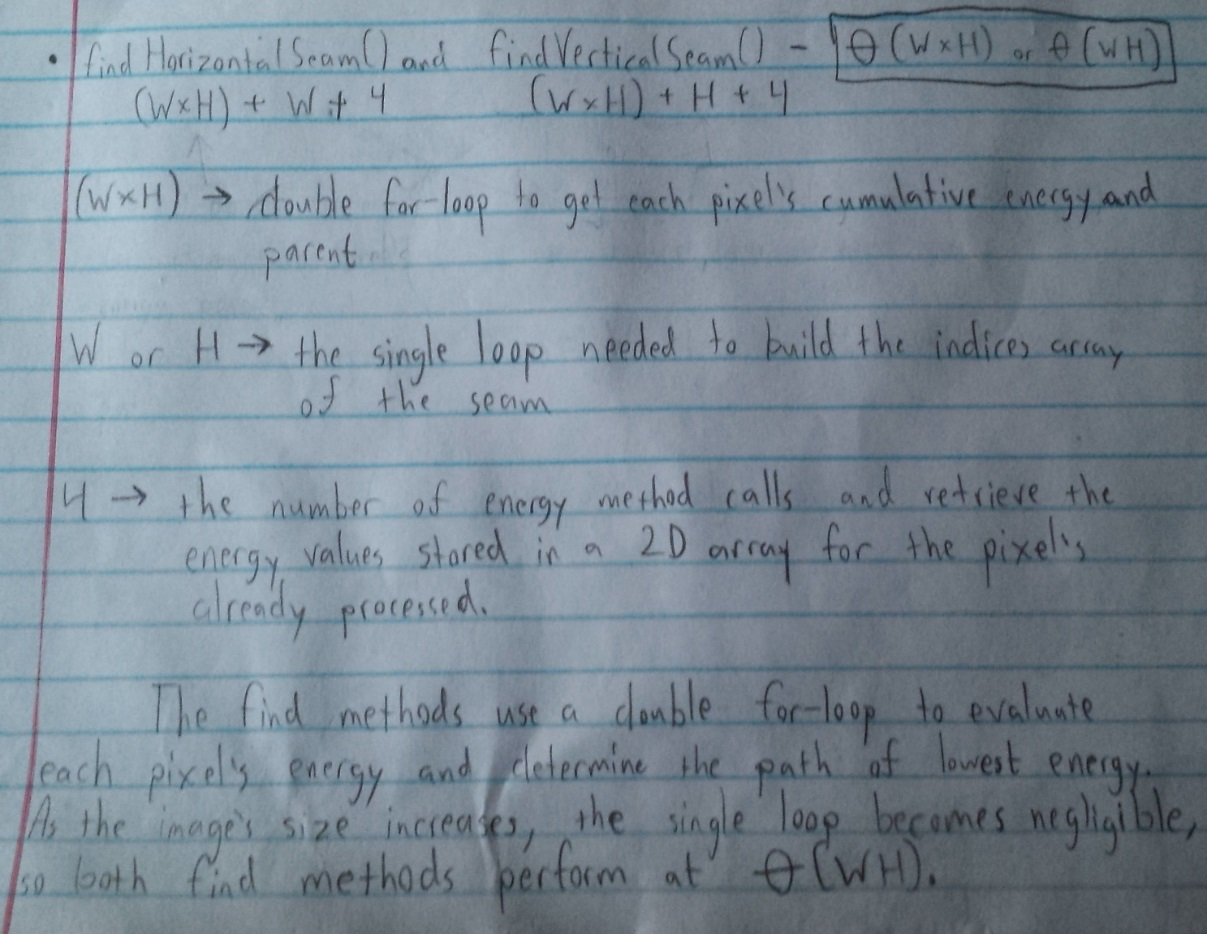 • findHorizontalSeam() and findVerticalSeam() - θ(W×H) or θ(WH)
(W×H) + W + 4 (W×H) + H + 4
(W×H) → double for-loop to get each pixel's cumulative energy and
parent
W or H → the single loop needed to build the indices array
of the seam
4 → the number of energy method calls and retrieve the
energy values stored in a 2D array for the pixel's
already processed.
The find methods use a double for-loop to evaluate
each pixel's energy and determine the path of lowest energy.
As the image's size increases, the single loop becomes negligible,
so both find methods perform at θ(WH).